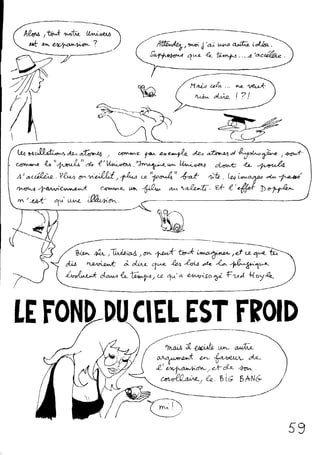 Alors, tout notre Univers
est en expansion ?
Attendez, moi j'ai une autre idée.
Supposons que le temps... s'accélère.
Mais cela... ne veut
rien dire ! ?!
Les oscillations des atomes, comme par exemple des atomes d'hydrogène, sont
comme le "pouls" de l'Univers. Imaginez un Univers dont le pouls
s'accélère. Plus on vieillit, plus ce "pouls" bat vite. Les images du passé
nous parviennent comme un film au ralenti. Et l'effet Doppler
n'est qu'une illusion.
Bien sûr, Tirésias, on peut tout imaginer, et ce que tu
dis revient à dire que les lois de la physique
évoluent dans le temps, ce qu'a envisagé Fred Hoyle.
LE FOND DU CIEL EST FROID
Mais il existe un autre
argument en faveur de
l'expansion, et de son
corollaire, le BIG BANG
mi !
59